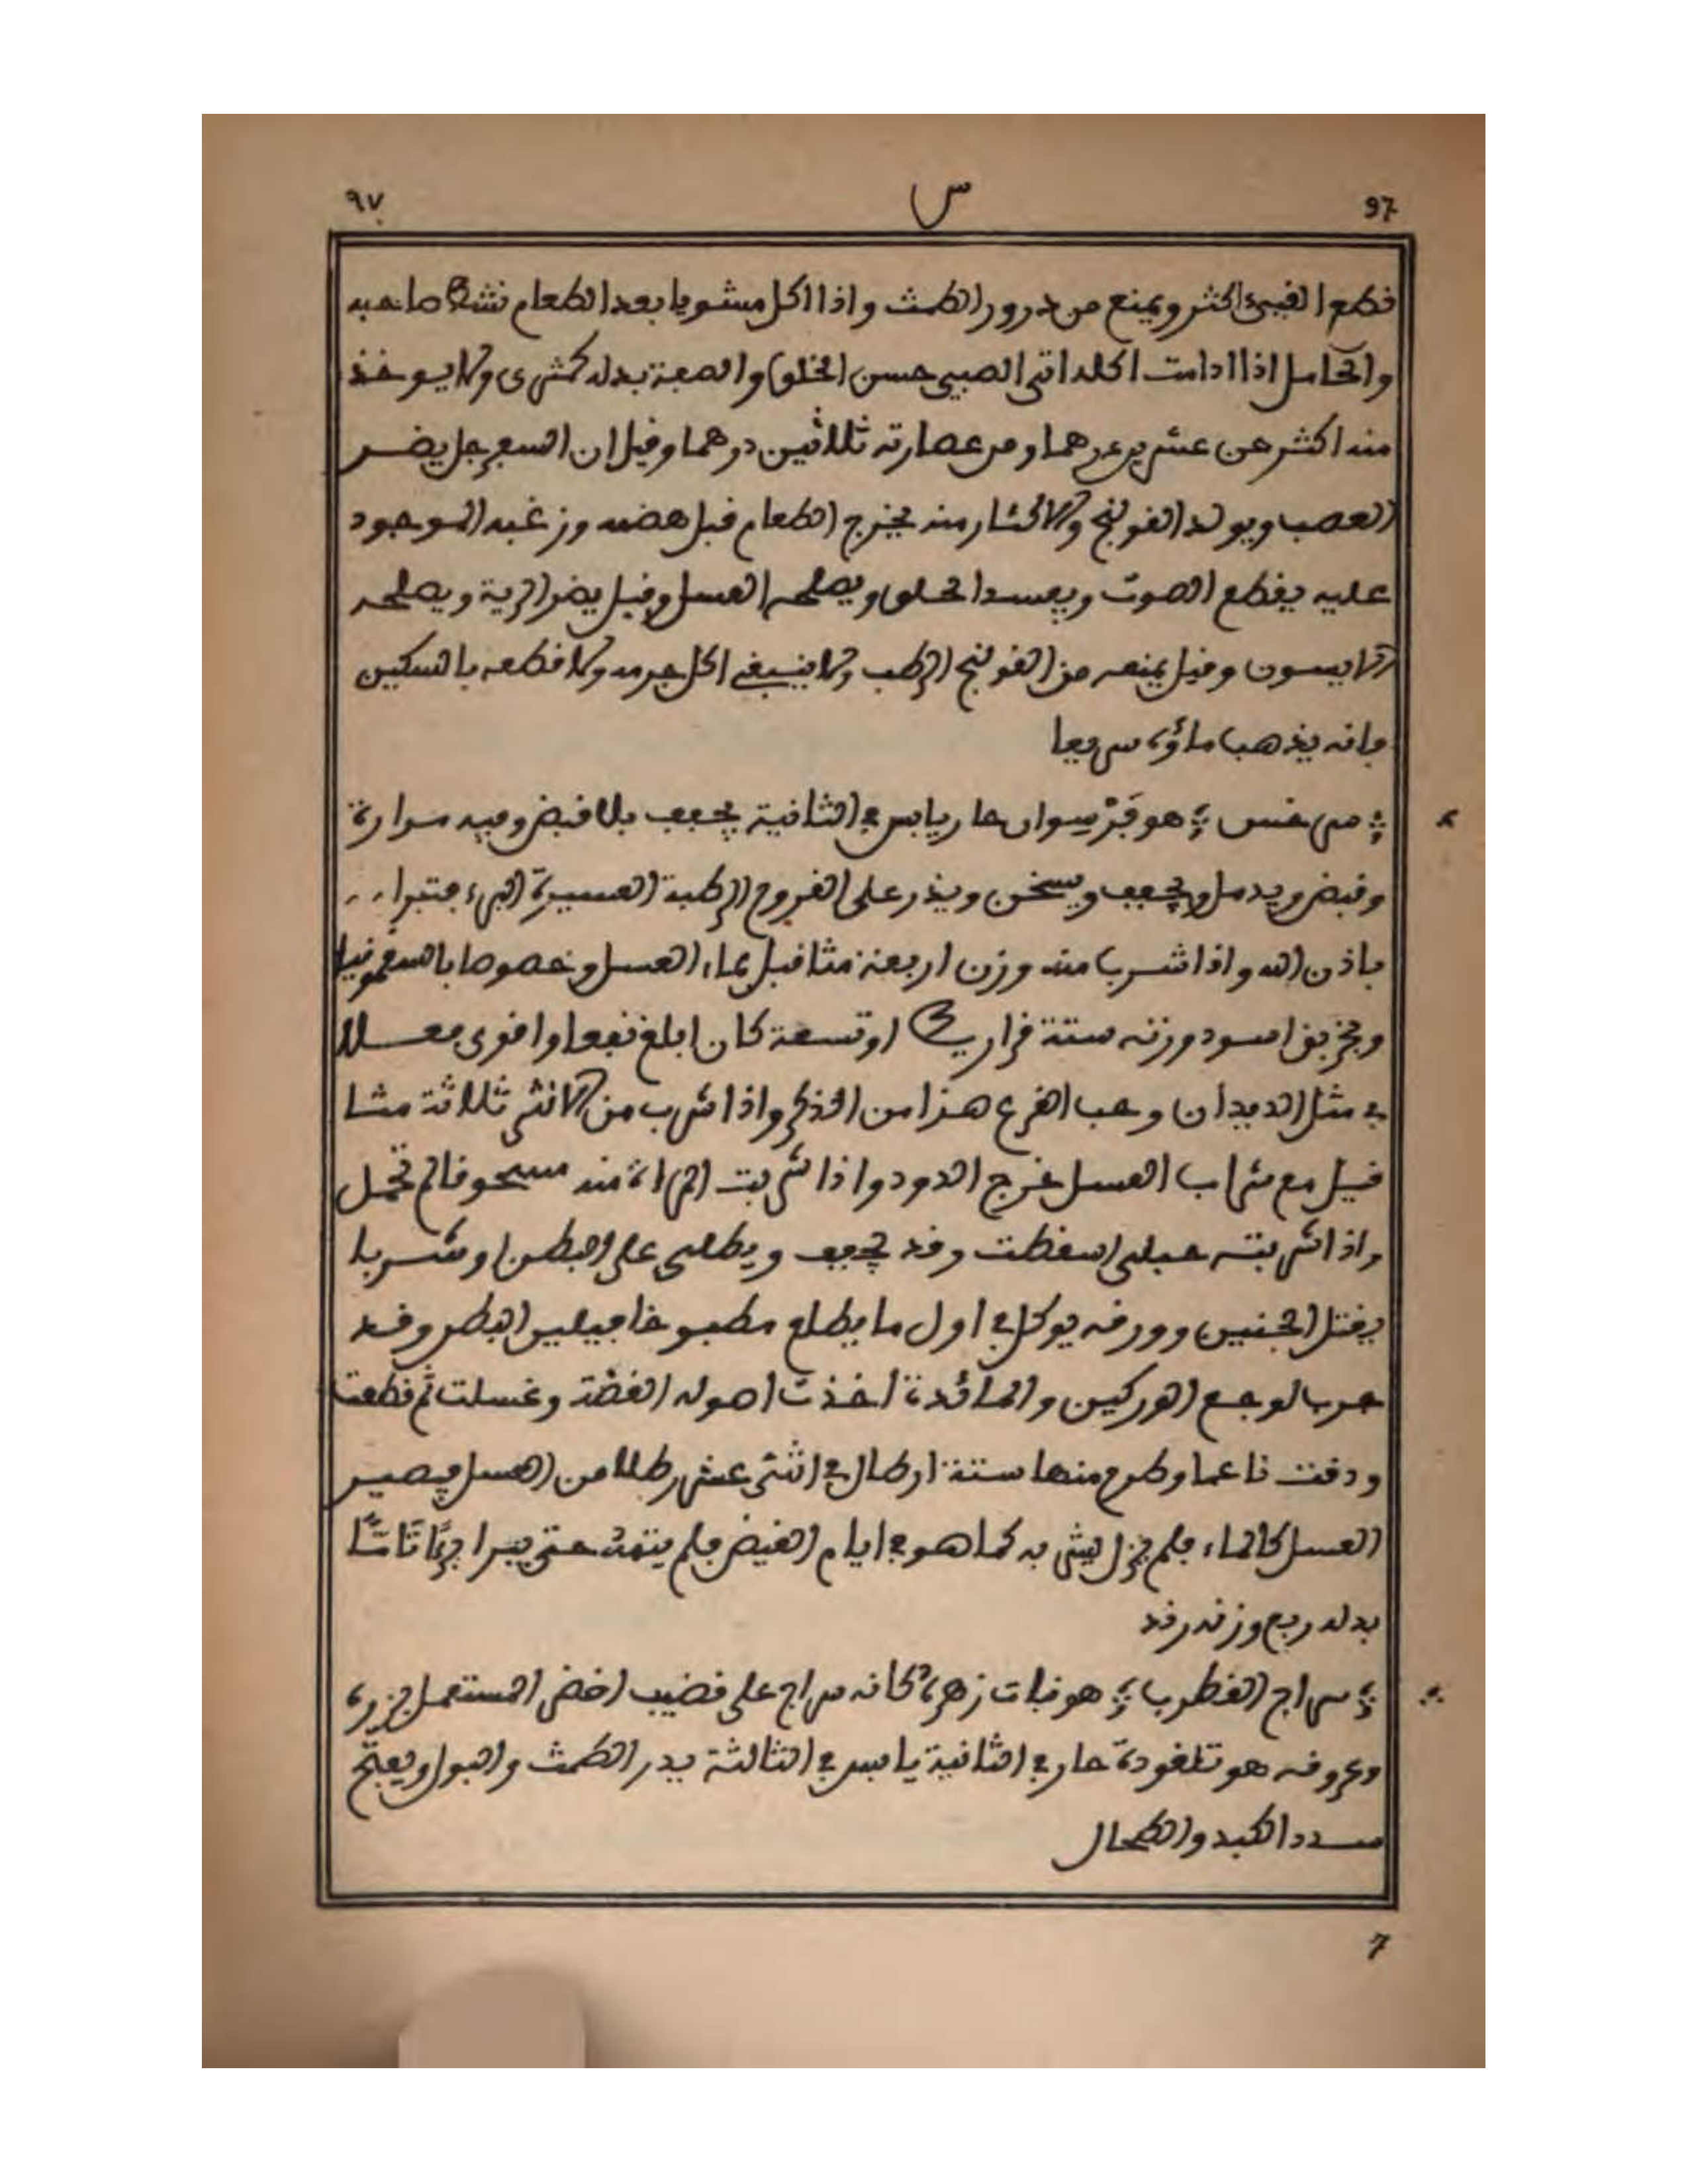 ٩٧ س 97
قطع القيئ اكثر ويمنع من درور الطمث واذا اكل مشويا بعد الطعام نشط صاحبه
والحامل اذا ادامت اكله اتى الصبي حسن الخلق والصبغة بدله كمثرى ولا يوخذ
منه اكثر من عشرين درهما ومن عصارته ثلاثين درهما وقيل ان السفرجل يضر
العصب ويولد القولنج والاكثار منه يخرج الطعام قبل هضمه وزغبه الموجود
عليه يقطع الصوت ويفسد الحلق ويصلحه العسل وقيل يضر الرية ويصلحه
الانيسون وقيل يمنعه من القولنج الرطب ولا ينبغي اكل جرمه ولا قطعه بالسكين
فانه يذهب ماؤه سريعا
سرخس هو فرسوان حار يابس في الثانية يجفف بلا قبض وفيه مرارة
وقبض ويدمل ويجفف ويسخن ويذر على القروح الرطبة العسيرة البرء فتبرا
باذن الله واذا شرب منه وزن اربعة مثاقيل بماء العسل وخصوصا بالسقمونيا
وبخربق اسود وزنه ستة قراريط او تسعة كان ابلغ نفعا واقوى فعلا
في مثل الديدان وحب القرع هذا من الذكر واذا شرب من الانثى ثلاثة مثا
قيل مع شراب العسل خرج الدود واذا شربت المراة منه مسحوقا لم تحمل
واذا شربته حبلى اسقطت وقد يجفف ويطلى على البطن وشربا
يقتل الجنين وورقه يوكل في اول ما يطلع مطبوخا فيلين البطن وقد
جرب لوجع الوركين والمائدة اخذت اصوله الغضة وغسلت ثم قطعت
ودقت ناعما وطرح منها ستة ارطال في اثني عشر رطلا من العسل فيصير
العسل كالماء فلم يزل يمشي به كما هو في ايام القيض فلم ينته حتى يبرا برءا تاما
بدله ربع وزنه رقد
سراج القطرب هو نبات زهره كانه سراج على قضيب اخضر المستعمل بزره
وعروقه هو تلغودة حار في الثانية يابس في الثالثة يدر الطمث والبول ويفتح
سدد الكبد والطحال
7